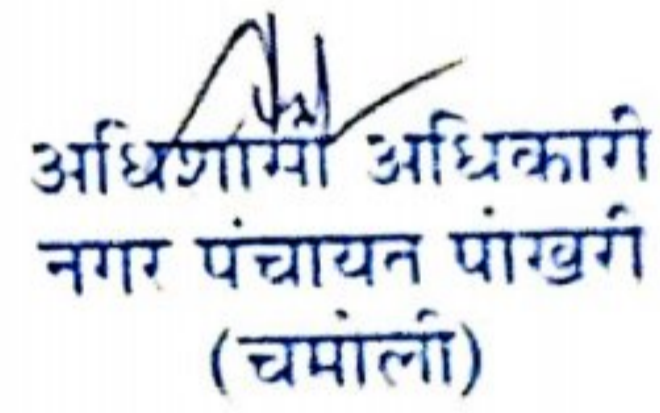 अधिशासी अधिकारी
नगर पंचायत पोखरी
(चमोली)